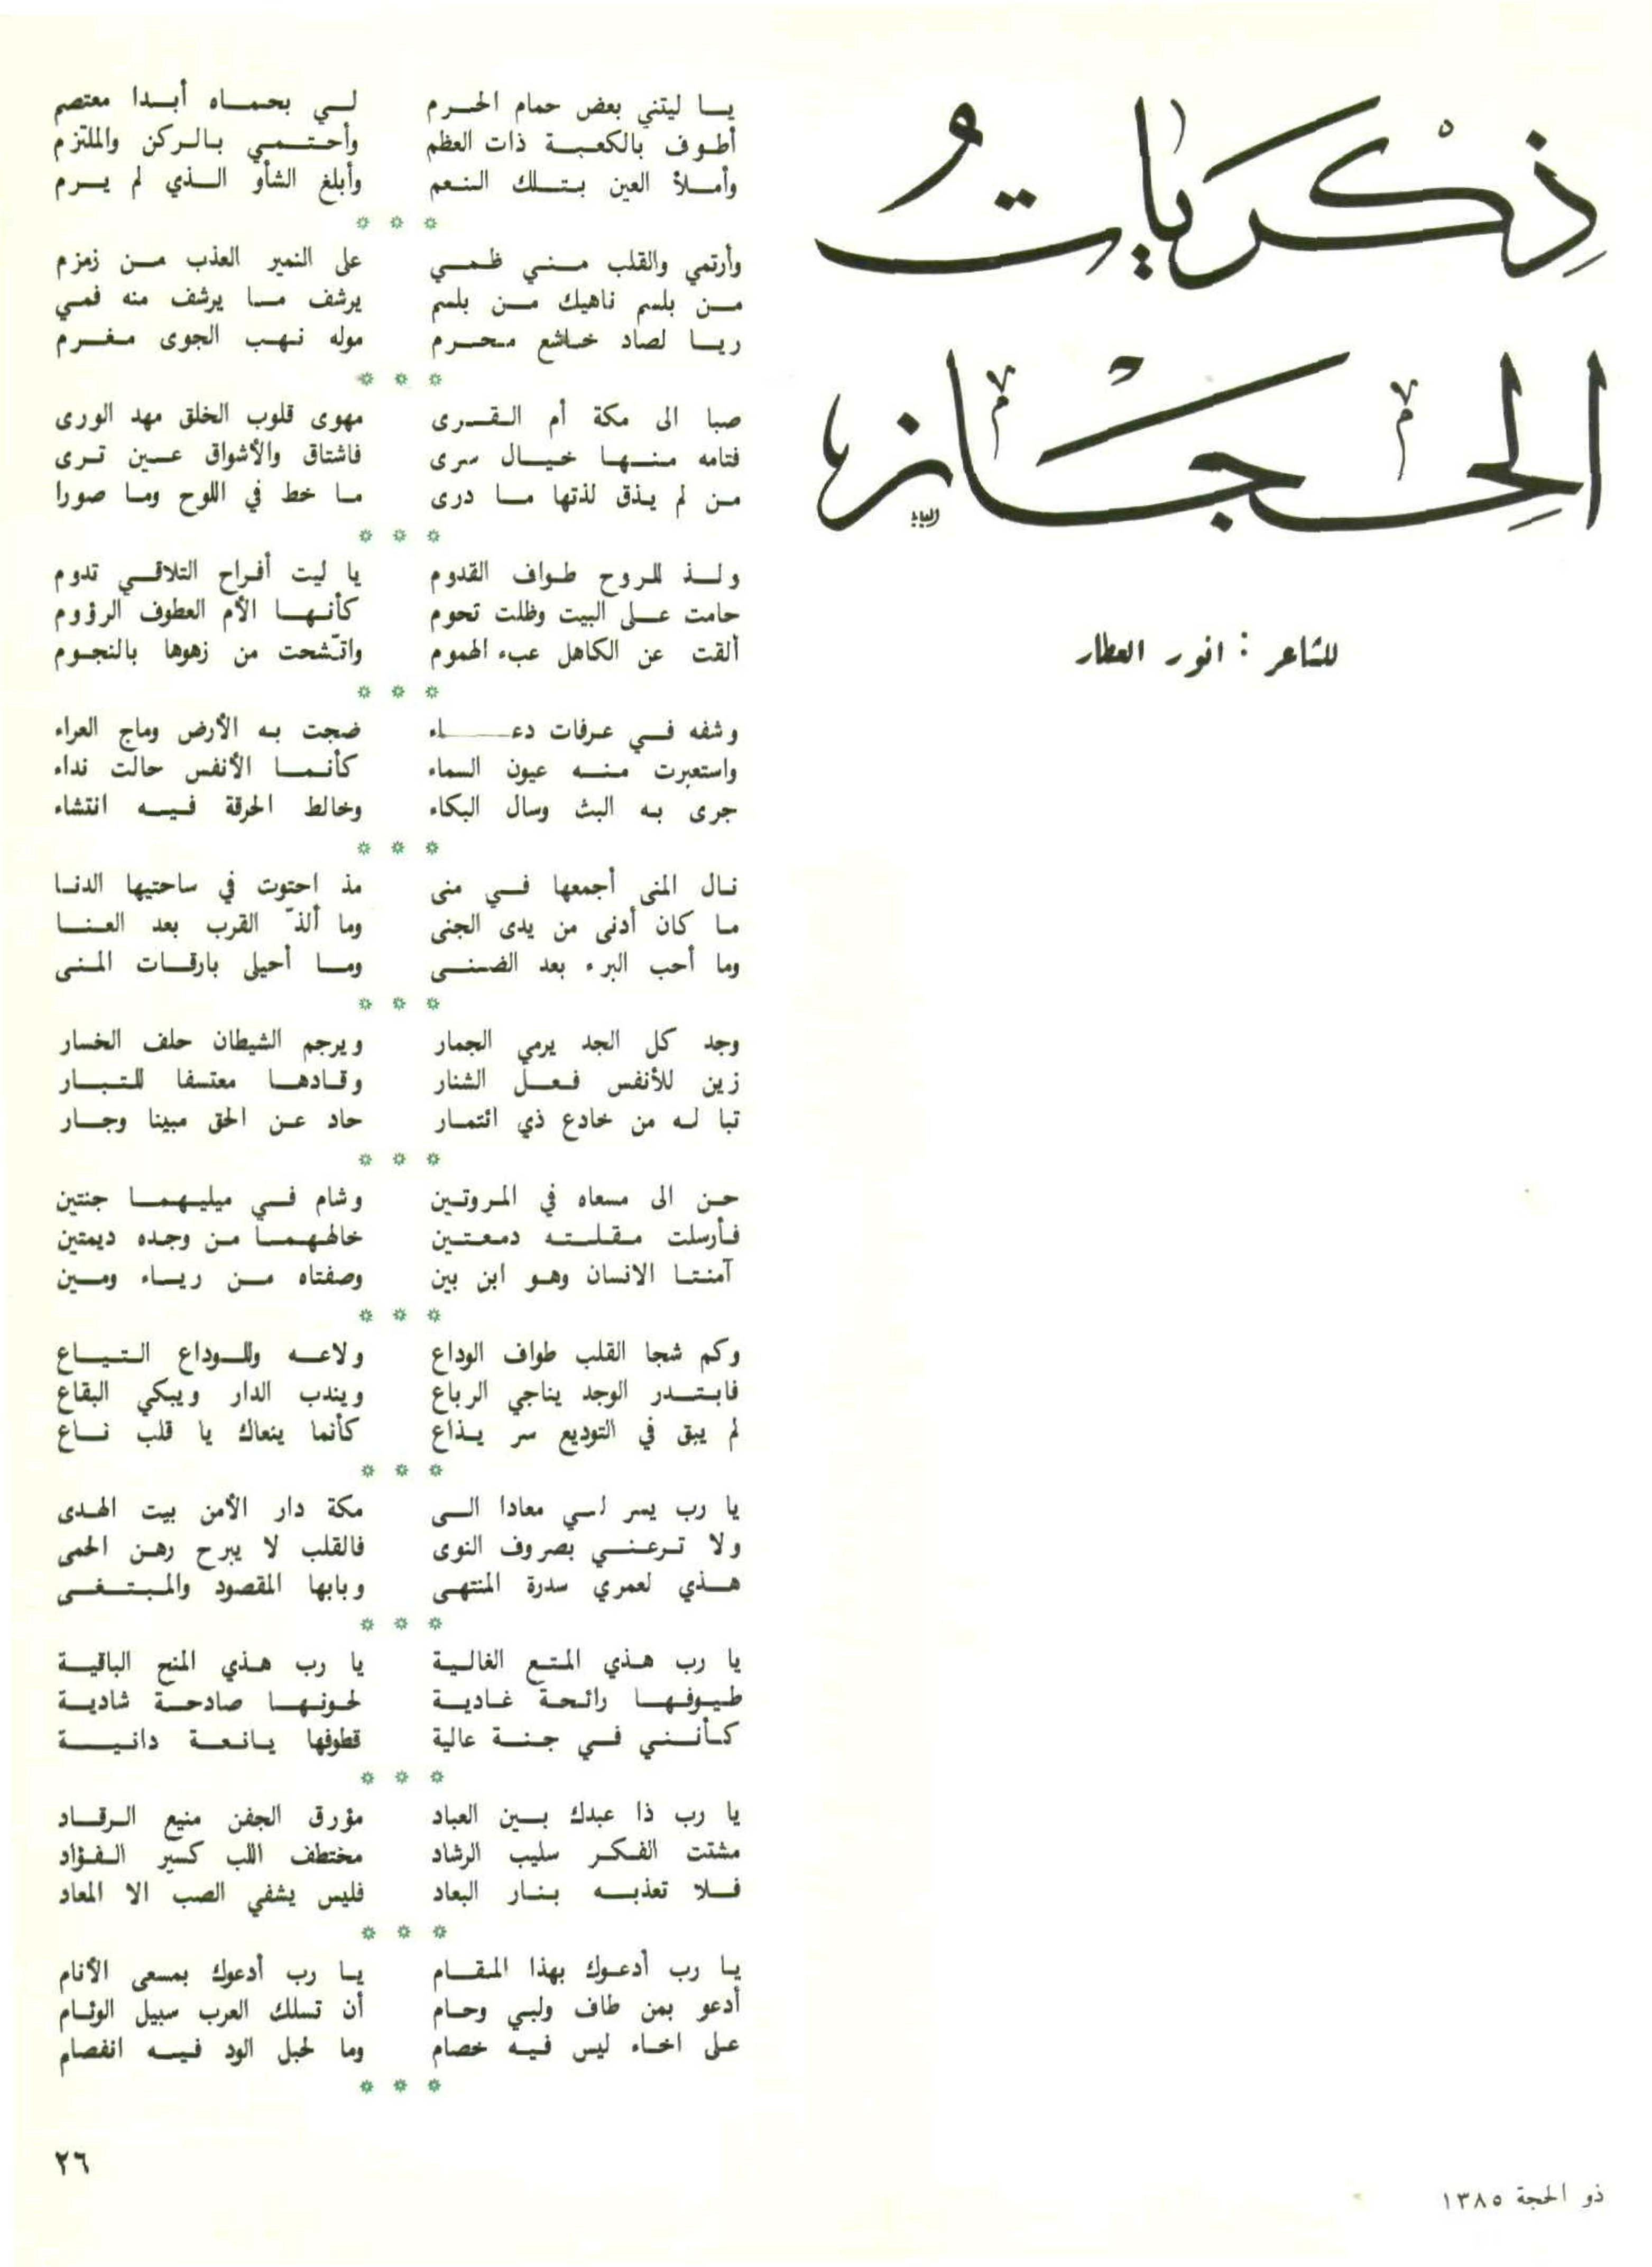 ذِكْرَيَاتُ
الحِجَاز
للشاعر : انور العطار
يا ليتني بعض حمام الحرم لي بحماه أبدا معتصم
أطوف بالكعبة ذات العظم وأحتمي بالركن والملتزم
وأملأ العين بتلك النعم وأبلغ الشأو الذي لم يرم
* * *
وأرتمي والقلب مني ظمي على النمير العذب من زمزم
من بلسم ناهيك من بلسم يرشف ما يرشف منه فمي
ريا لصاد خاشع محرم موله نهب الجوى مغرم
* * *
صبا الى مكة أم القرى مهوى قلوب الخلق مهد الورى
فتامه منها خيال سرى فاشتاق والأشواق عين ترى
من لم يذق لذتها ما درى ما خط في اللوح وما صورا
* * *
ولذ للروح طواف القدوم يا ليت أفراح التلاقي تدوم
حامت على البيت وظلت تحوم كأنها الأم العطوف الرؤوم
ألقت عن الكاهل عبء الهموم واتّشحت من زهوها بالنجوم
* * *
وشفه في عرفات دعاء ضجت به الأرض وماج العراء
واستعبرت منه عيون السماء كأنما الأنفس حالت نداء
جرى به البث وسال البكاء وخالط الحرقة فيه انتشاء
* * *
نال المنى أجمعها في منى مذ احتوت في ساحتيها الدنا
ما كان أدنى من يدى الجنى وما ألذّ القرب بعد العنا
وما أحب البرء بعد الضنى وما أحيلى بارقات المنى
* * *
وجد كل الجد يرمي الجمار ويرجم الشيطان حلف الخسار
زين للأنفس فعل الشنار وقادها معتسفا للتبار
تبا له من خادع ذي ائتمار حاد عن الحق مبينا وجار
* * *
حن الى مسعاه في المروتين وشام في ميليهما جنتين
فأرسلت مقلته دمعتين خالهما من وجده ديمتين
آمنتا الانسان وهو ابن بين وصفتاه من رياء ومين
* * *
وكم شجا القلب طواف الوداع ولاعه وللوداع التياع
فابتدر الوجد يناجي الرباع ويندب الدار ويبكي البقاع
لم يبق في التوديع سر يذاع كأنما ينعاك يا قلب ناع
* * *
يا رب يسر لي معادا الى مكة دار الأمن بيت الهدى
ولا ترعني بصروف النوى فالقلب لا يبرح رهن الحمى
هذي لعمري سدرة المنتهى وبابها المقصود والمبتغى
* * *
يا رب هذي المتع الغالية يا رب هذي المنح الباقية
طيوفها رائحة غادية لحونها صادحة شادية
كأنني في جنة عالية قطوفها يانعة دانية
* * *
يا رب ذا عبدك بين العباد مؤرق الجفن منيع الرقاد
مشتت الفكر سليب الرشاد مختطف اللب كسير الفؤاد
فلا تعذبه بنار البعاد فليس يشفي الصب الا المعاد
* * *
يا رب أدعوك بهذا المقام يا رب أدعوك بمسعى الأنام
أدعو بمن طاف ولبي وحام أن تسلك العرب سبيل الوئام
على اخاء ليس فيه خصام وما لحبل الود فيه انفصام
* * *
٢٦
ذو الحجة ١٣٨٥